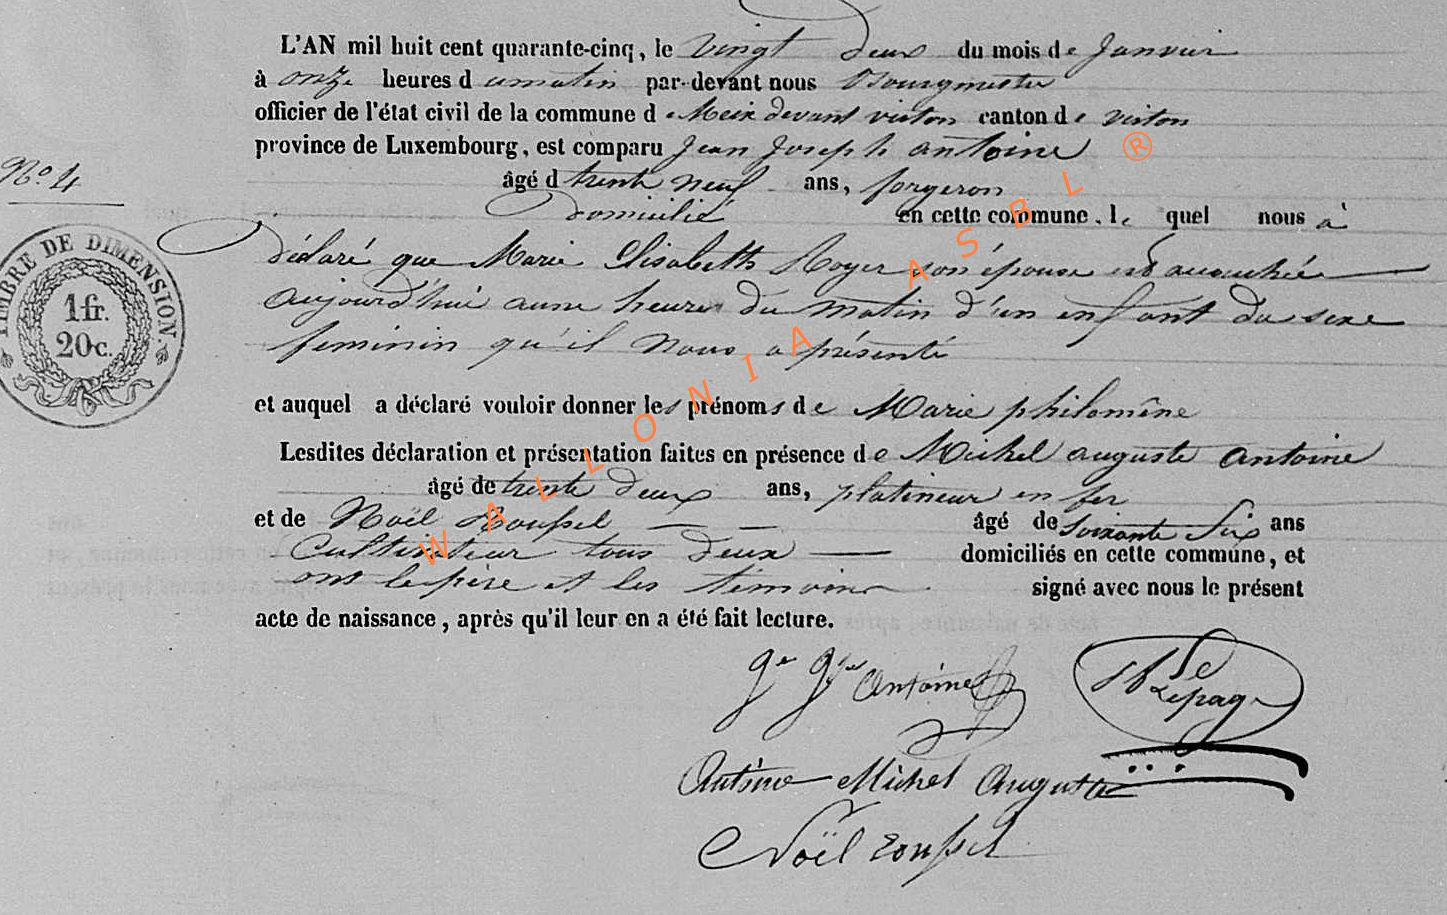 L'AN mil huit cent quarante-cinq, le vingt deux du mois de Janvier
à onze heures du matin par-devant nous Bourgmestre
officier de l'état civil de la commune de Meix devant virton canton de virton
province de Luxembourg, est comparu Jean Joseph antoine
No. 4
âgé d trente neuf ans, forgeron
domicilié en cette commune, le quel nous à
déclaré que Marie Elisabeth Royer son épouse est accouchée
aujourd'hui a une heure du matin d'un enfant du sexe
féminin qu'il nous a présenté
et auquel a déclaré vouloir donner les prénoms de Marie philomène
Lesdites déclaration et présentation faites en présence de Michel auguste antoine
âgé de trente deux ans, platineur en fer
et de Noël Roussel âgé de soixante six ans
Cultivateur tous deux domiciliés en cette commune, et
ont le père et les témoins signé avec nous le présent
acte de naissance, après qu'il leur en a été fait lecture.
TIMBRE DE DIMENSION
1 fr.
20 c.
Antoine
Lepage
Antoine Michel Auguste
Noël roussel
WALLONIA ASBL ®